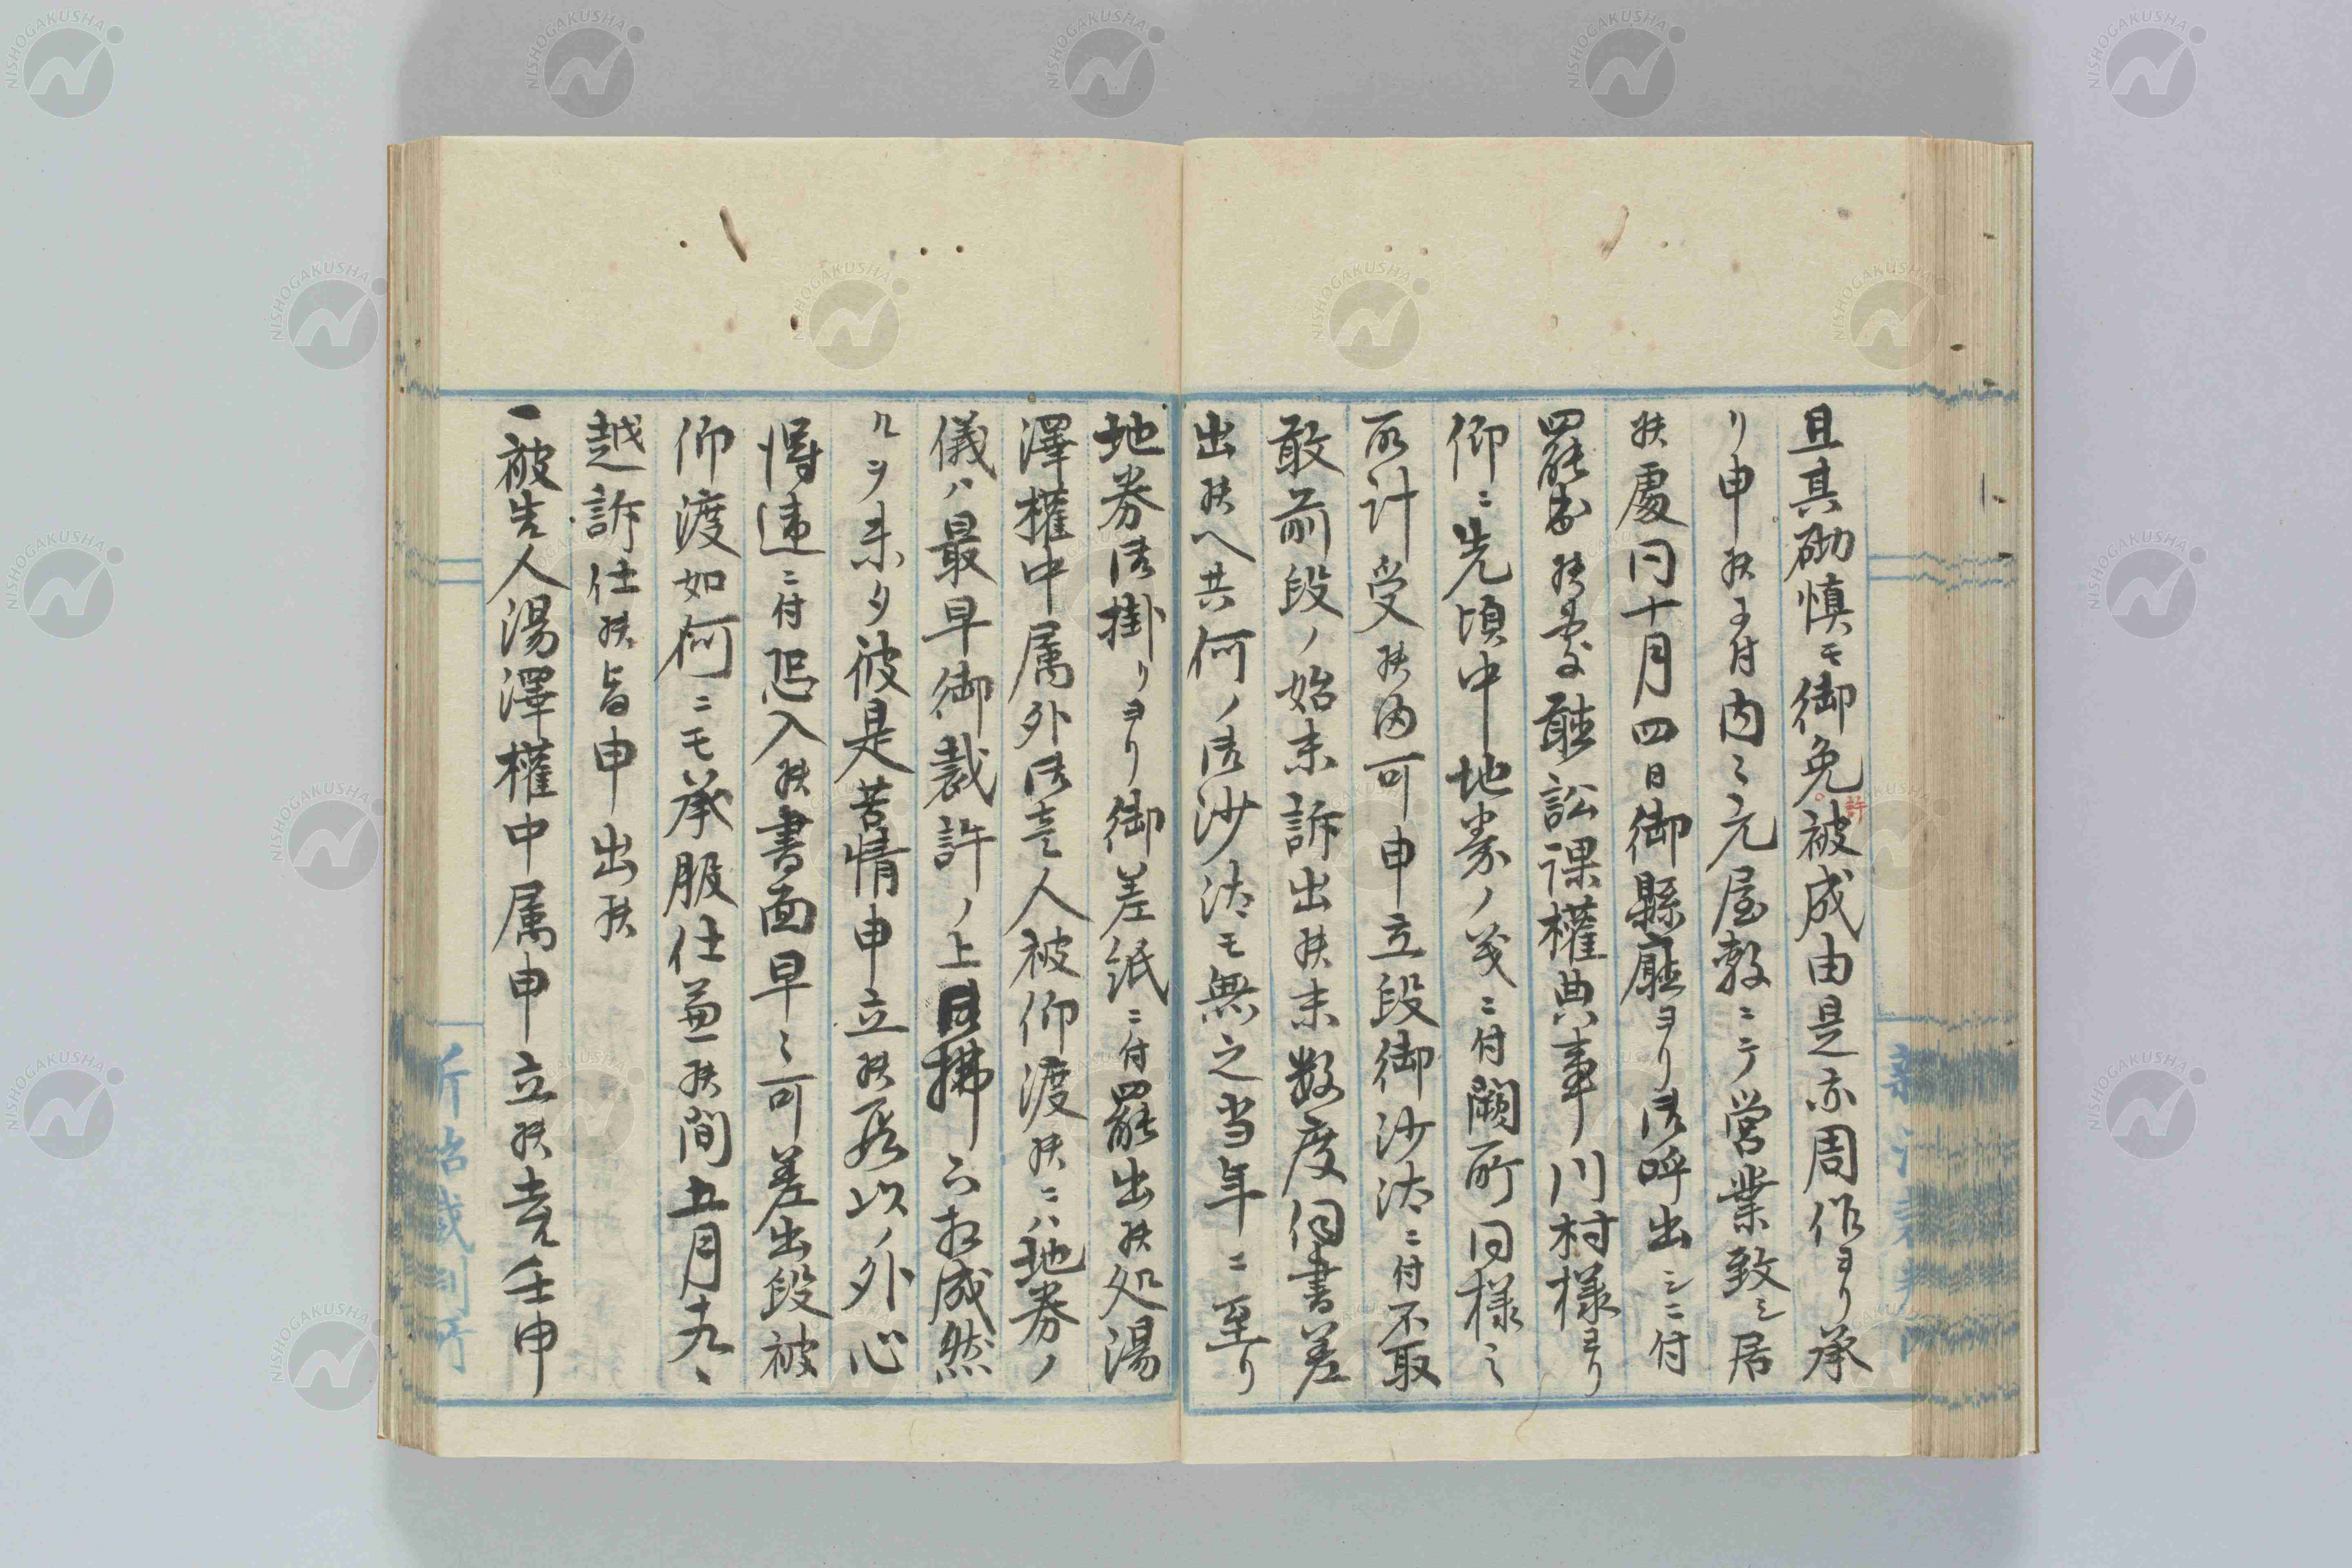 且其砌慎モ御免許被成由是亦周作ヨリ承
リ申候ニ付内々元屋敷ニテ営業致シ居
候處同十月四日御縣廰ヨリ御呼出シニ付
罷出候處聴訟課權典事川村様ヨリ
仰ニ先頃中地券ノ義ニ付闕所同様之
取計受候内可申立段御沙汰ニ付不取
敢前段ノ始末訴出候末数度伺書差
出候ヘ共何ノ御沙汰モ無之当年ニ至リ
地券御掛リヨリ御差紙ニ付罷出候処湯
澤權中属外御壱人被仰渡候ニハ地券ノ
儀ハ最早御裁許ノ上払ニ相成然
ルヲ未タ彼是苦情申立候段以ノ外心
得違ニ付恐入候書面早々可差出段被
仰渡如何ニモ承服仕兼候間五月十九日
越訴仕候旨申出候
一被告人湯澤權中属申立候去ル壬申
新治裁判所
新治裁判所
NISHOGAKUSHA